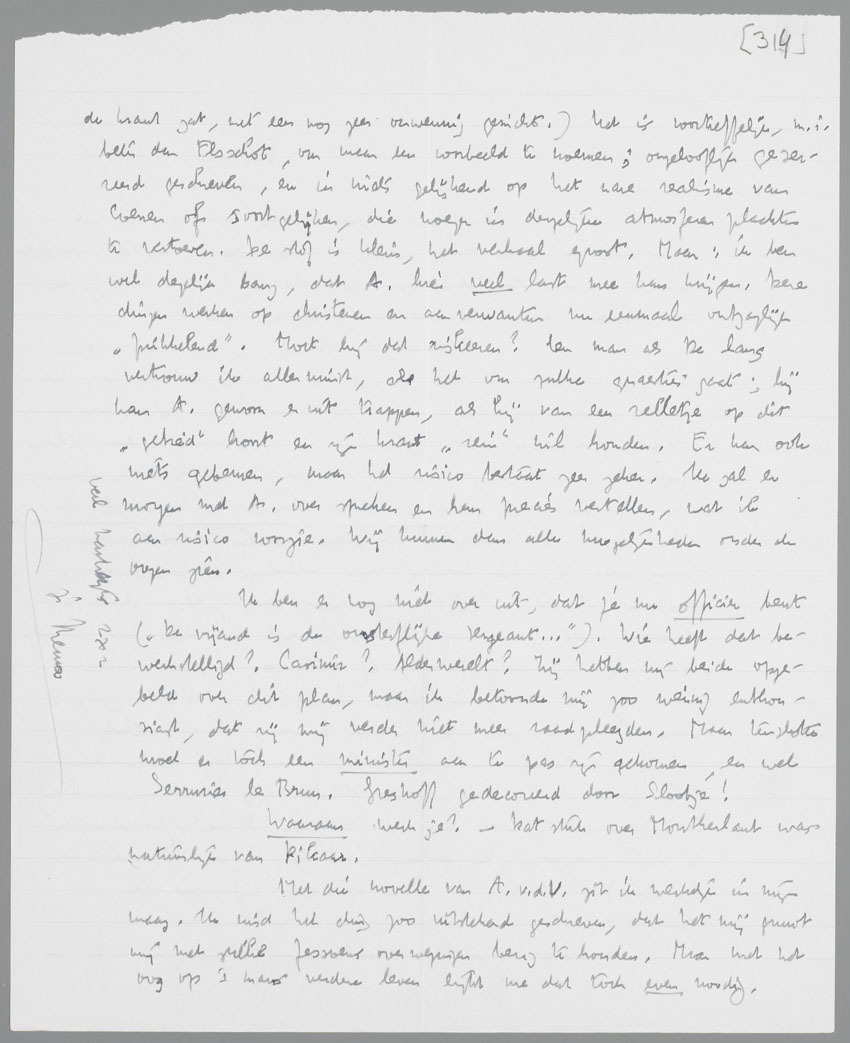 [314]
de krant gaf, met een nog zeer verwennig gezicht.) Het is voortreffelijk, m.i.
beter dan Elsschot, om maar een voorbeeld te noemen; ongelooflijk geser-
reerd geschreven, en in niets gelijkend op het nare realisme van
Coenen ofs soortgelijken, die vroeger in dergelijke atmosferen plachten
te vertoeven. De stof is klein, het verhaal groot. Maar: ik ben
wel degelijk bang, dat A. hier veel last mee kan krijgen. Deze
dingen werken op christenen en aanverwanten nu eenmaal ontzaglijk
„prikkelend". Moet hij dat riskeeren? Een man als De Lang
vertrouw ik allerminst, als het om zulke quaesties gaat; hij
kan A. gewoon er uit trappen, als hij van een relletje op dit
„gebied" hoort en zijn krant „rein" wil houden. Er kan ook
niets gebeuren, maar het risico bestaat zeer zeker. Ik zal er
morgen met A. over spreken en hem precies vertellen, wat ik
aan risico voorzie. Wij kunnen dan alle mogelijkheden onder de
oogen zien.
Ik ben er nog niet over uit, dat je nu officier bent
(„De vijand is de onsterflijke sergeant..."). Wie heeft dat be-
werkstelligd? Casimir? Nederwerelt? Zij hebben mij beide opge-
beld over dit plan, maar ik betoonde mij zoo weinig enthou-
siast, dat zij mij verder niet meer raadpleegden. Maar tenslotte
moet er toch een minister aan te pas zijn gekomen, en wel
Serrurier le Brun. Greshoff gedecoreerd door Slootje!
Waaraan werk je? – Dat stuk over Montherlant was
natuurlijk van
Met die novelle van A. v.d.V. zit ik werkelijk in mijn
maag. Ik vind het ding zoo uitstekend geschreven, dat het mij
mij met zulke overwegingen bezig te houden. Maar met het
oog op 's mans verdere leven lijkt me dat toch even noodig.
veel hartelijks 2x2
je Menno